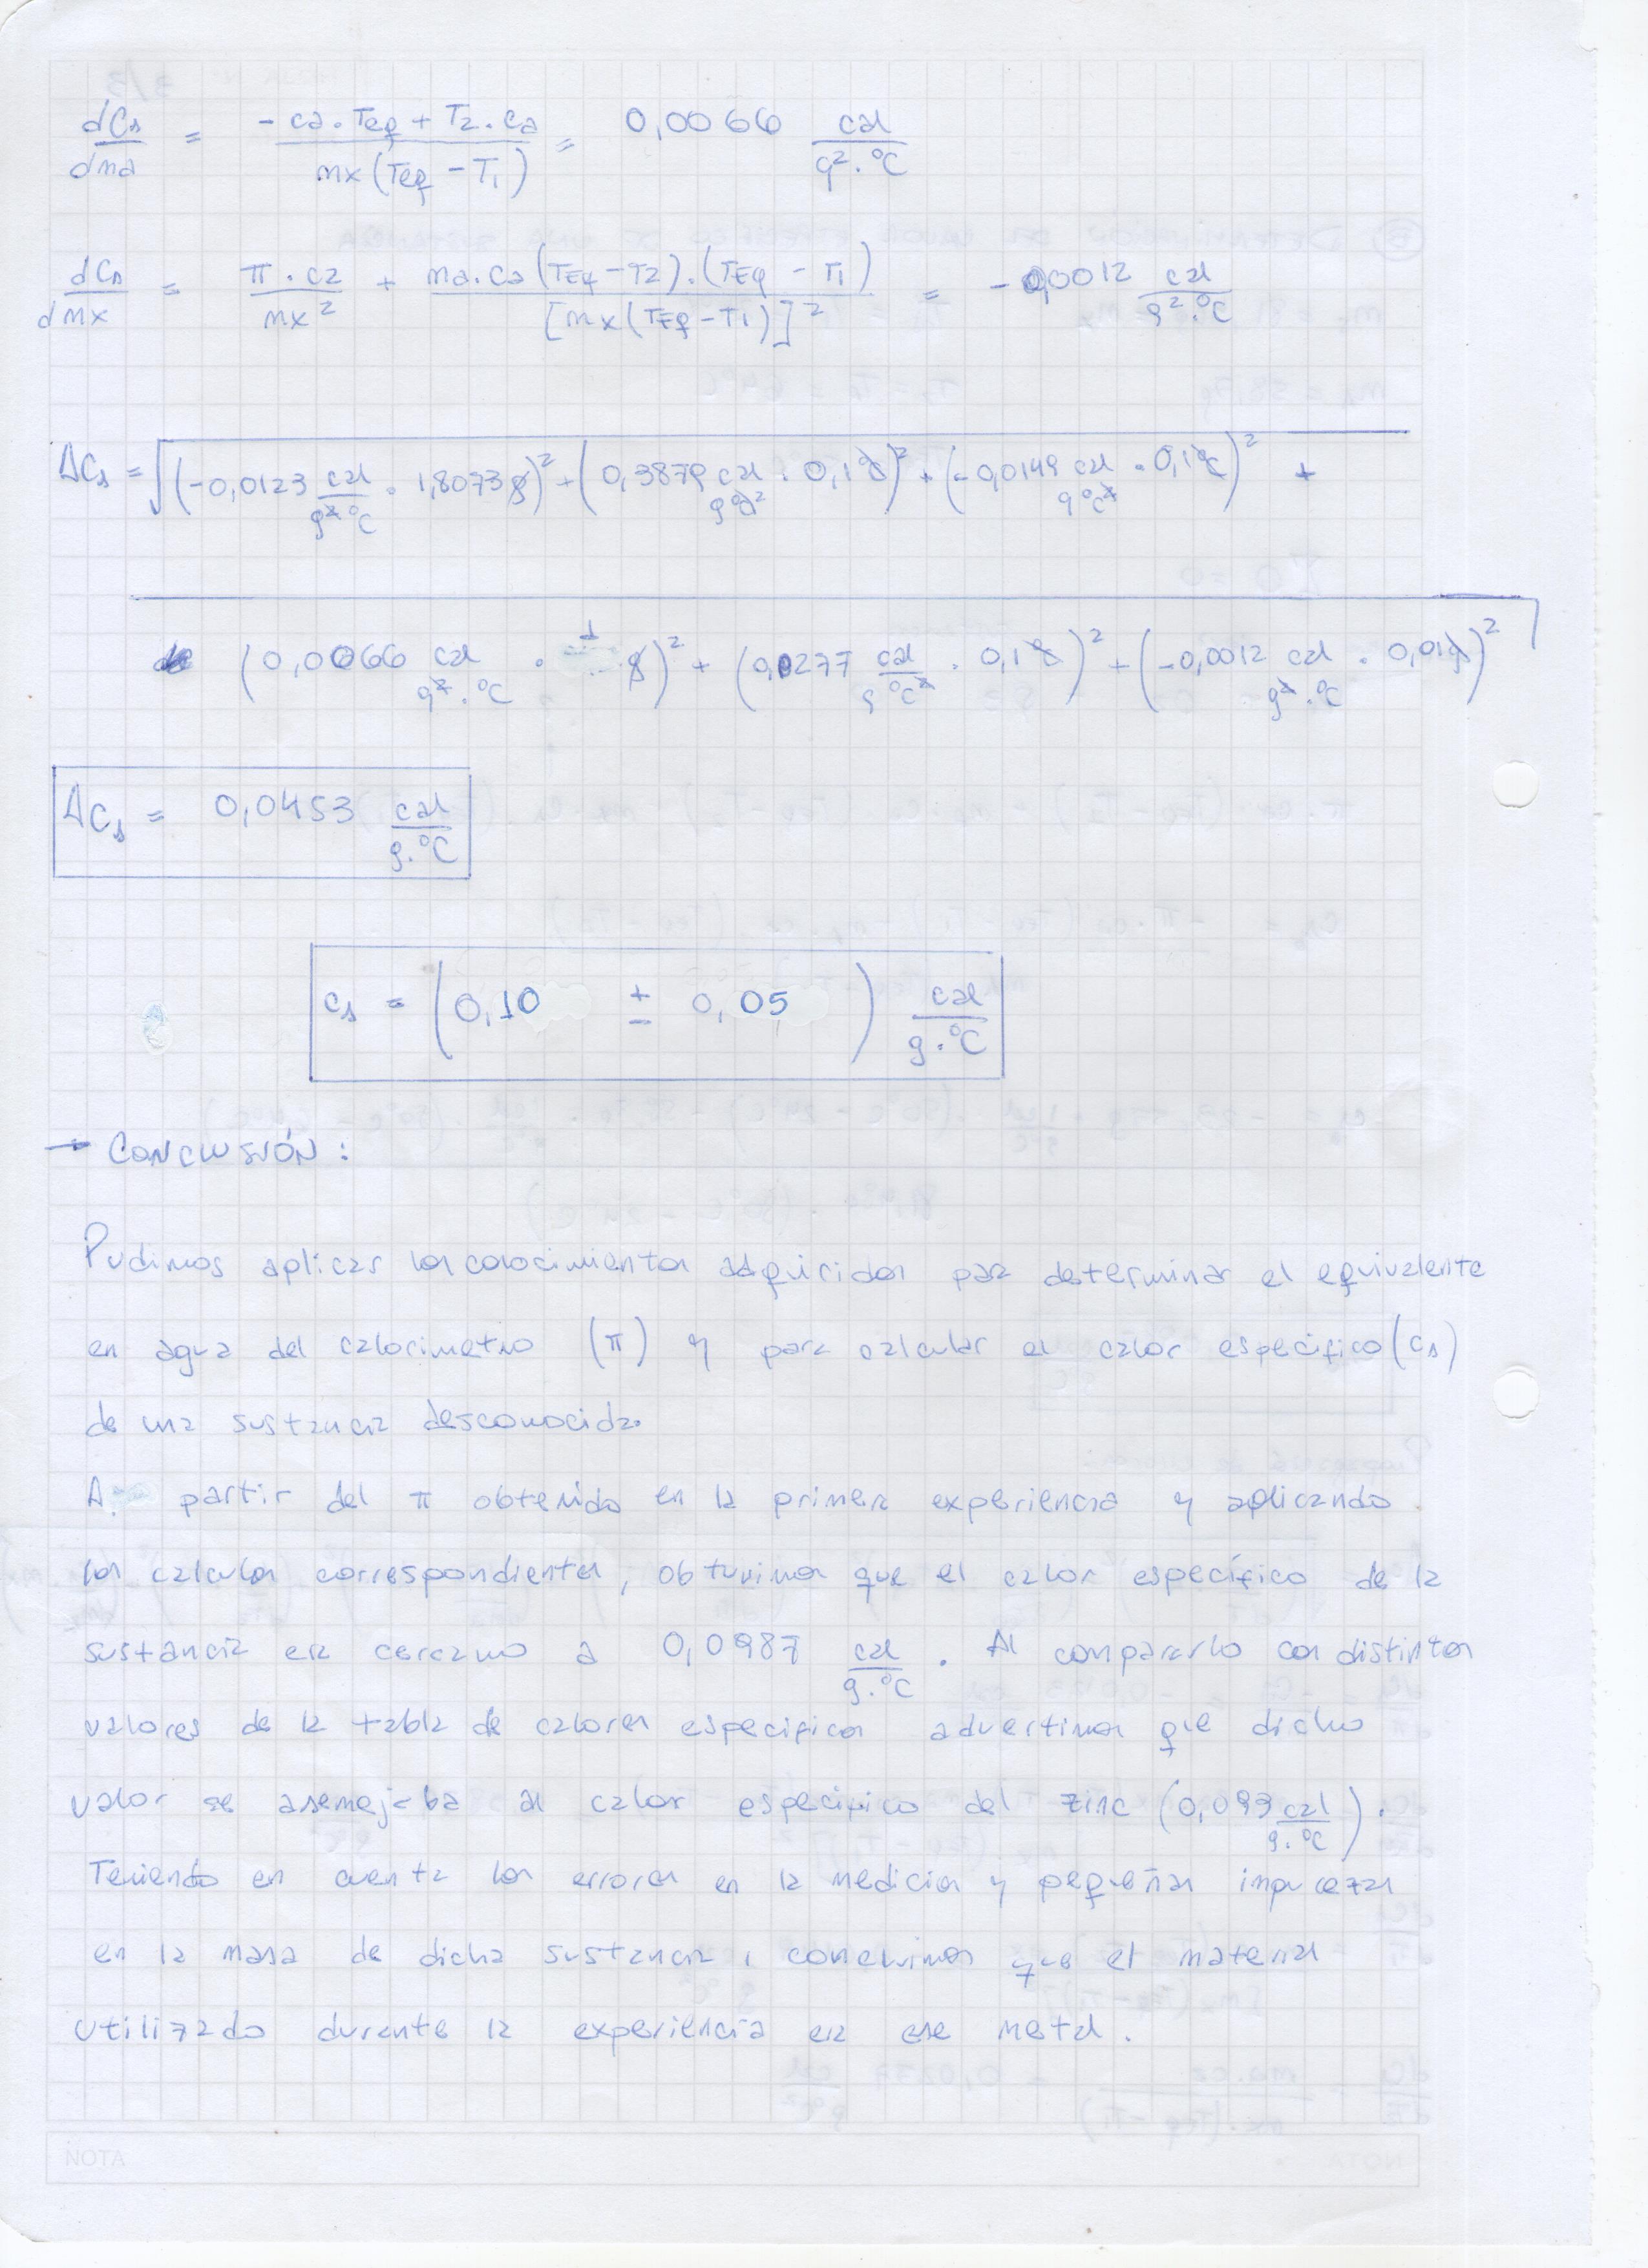 dCs/dma = (-ca.Teq + T2.ca)/(mx(Teq - T1)) = 0,0066 cal/(g².°C)
dCs/dmx = (π.ca)/(mx²) + (ma.ca(TEq - T2).(TEq - T1))/([mx(TEq - T1)]²) = -0,0012 cal/(g².°C)
ΔCs = √(-0,0123 cal/(g².°C) . 1,8073g)² + (0,3879 cal/(g°C²) . 0,1°C)² + (-0,0149 cal/(g°C²) . 0,1°C)² +
(0,0066 cal/(g².°C) . 1 g)² + (0,0277 cal/(g°C²) . 0,1°C)² + (-0,0012 cal/(g².°C) . 0,01g)²
ΔCs = 0,0453 cal/(g.°C)
cs = (0,10 ± 0,05) cal/(g.°C)
→ CONCLUSIÓN:
Pudimos aplicar los conocimientos adquiridos para determinar el equivalente
en agua del calorimetro (π) y para calcular el calor especifico (cs)
de una sustancia desconocida.
A partir del π obtenido en la primera experiencia y aplicando
los calculos correspondientes, obtuvimos que el calor específico de la
sustancia era cercano a 0,0987 cal/(g.°C). Al compararlo con distintos
valores de la tabla de calores especificos advertimos que dicho
valor se asemejaba al calor especifico del zinc (0,093 cal/(g.°C)).
Teniendo en cuenta los errores en la medicion y pequeñas impurezas
en la masa de dicha sustancia, concluimos que el material
utilizado durante la experiencia era ese metal.
NOTA